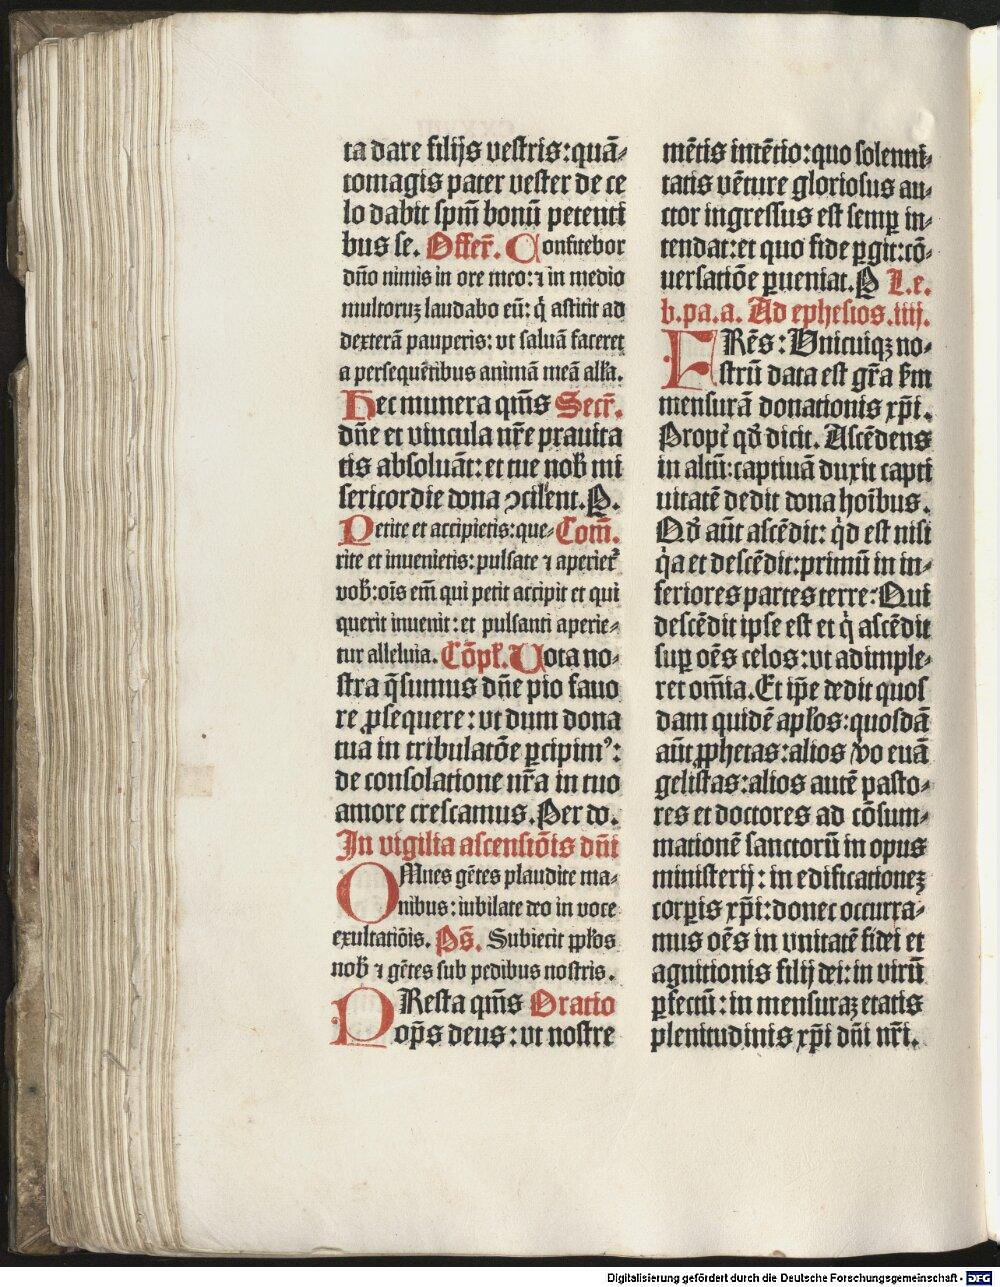 ta dare filijs vestris: quā⸗
tomagis pater vester de ce
lo dabit spm̄ bonū petenti
bus se. Offer̄. Confitebor
dn̄o nimis in ore meo: ⁊ in medio
multoruꝫ laudabo eū: q̇ astitit ad
dexterā pauperis: vt saluā faceret
a persequētibus animā meā all'a.
Hec munera qm̄s Secr̄.
dn̄e et vincula nr̄e prauita
tis absoluāt: et tue nob̄ mi
sericordie dona ↄcilient. P.
Petite et accipietis: que⸗ Com̄.
rite et inuenietis: pulsate ⁊ aperiet᷑
vob̄: oīs em̄ qui petit accipit et qui
querit inuenit: et pulsanti aperie⸗
tur alleluia. Cōpl'. Uota no⸗
stra q̄sumus dn̄e pio fauo
re ꝓsequere: vt dum dona
tua in tribulatōe ꝑcipimꝰ:
de consolatione nr̄a in tuo
amore crescamus. Per do.
In vigilia ascensiōis dn̄i
OMnes gētes plaudite ma⸗
nibus: iubilate deo in voce
exultatiōis. Ps̄. Subiecit ppl'os
nob̄ ⁊ gētes sub pedibus nostris.
PResta qm̄s Oratio
op̄s deus: vt nostre
mētis intētio: quo solenni⸗
tatis vēture gloriosus au⸗
ctor ingressus est semꝑ in⸗
tendat: et quo fide ꝑgit: cō⸗
uersatiōe ꝑueniat. P L. e.
b. pa. a. Ad ephesios. iiij.
FRēs: Unicuiqꝫ no⸗
strū data est gr̄a s'm
mensurā donationis xp̄i.
Propt᷑ qd̄ dicit. Ascēdens
in altū: captiuā duxit capti
uitatē dedit dona hoībus.
Qd̄ aūt ascēdit: qd̄ est nisi
q̇a et descēdit: primū in in⸗
feriores partes terre: Qui
descēdit ipse est et q̇ ascēdit
suꝑ oēs celos: vt adimple⸗
ret om̄ia. Et ip̄e dedit quos
dam quidē apl'os: quosdā
aūt ꝓphetas: alios v̊o euā
gelistas: alios autē pasto⸗
res et doctores ad cōsum⸗
mationē sanctorū in opus
ministerij: in edificationeꝫ
corꝑis xp̄i: donec occurra⸗
mus oēs in vnitatē fidei et
agnitionis filij dei: in virū
ꝑfectū: in mensuraꝫ etatis
plenitudinis xp̄i dn̄i nr̄i.
Digitalisierung gefördert durch die Deutsche Forschungsgemeinschaft - DFG